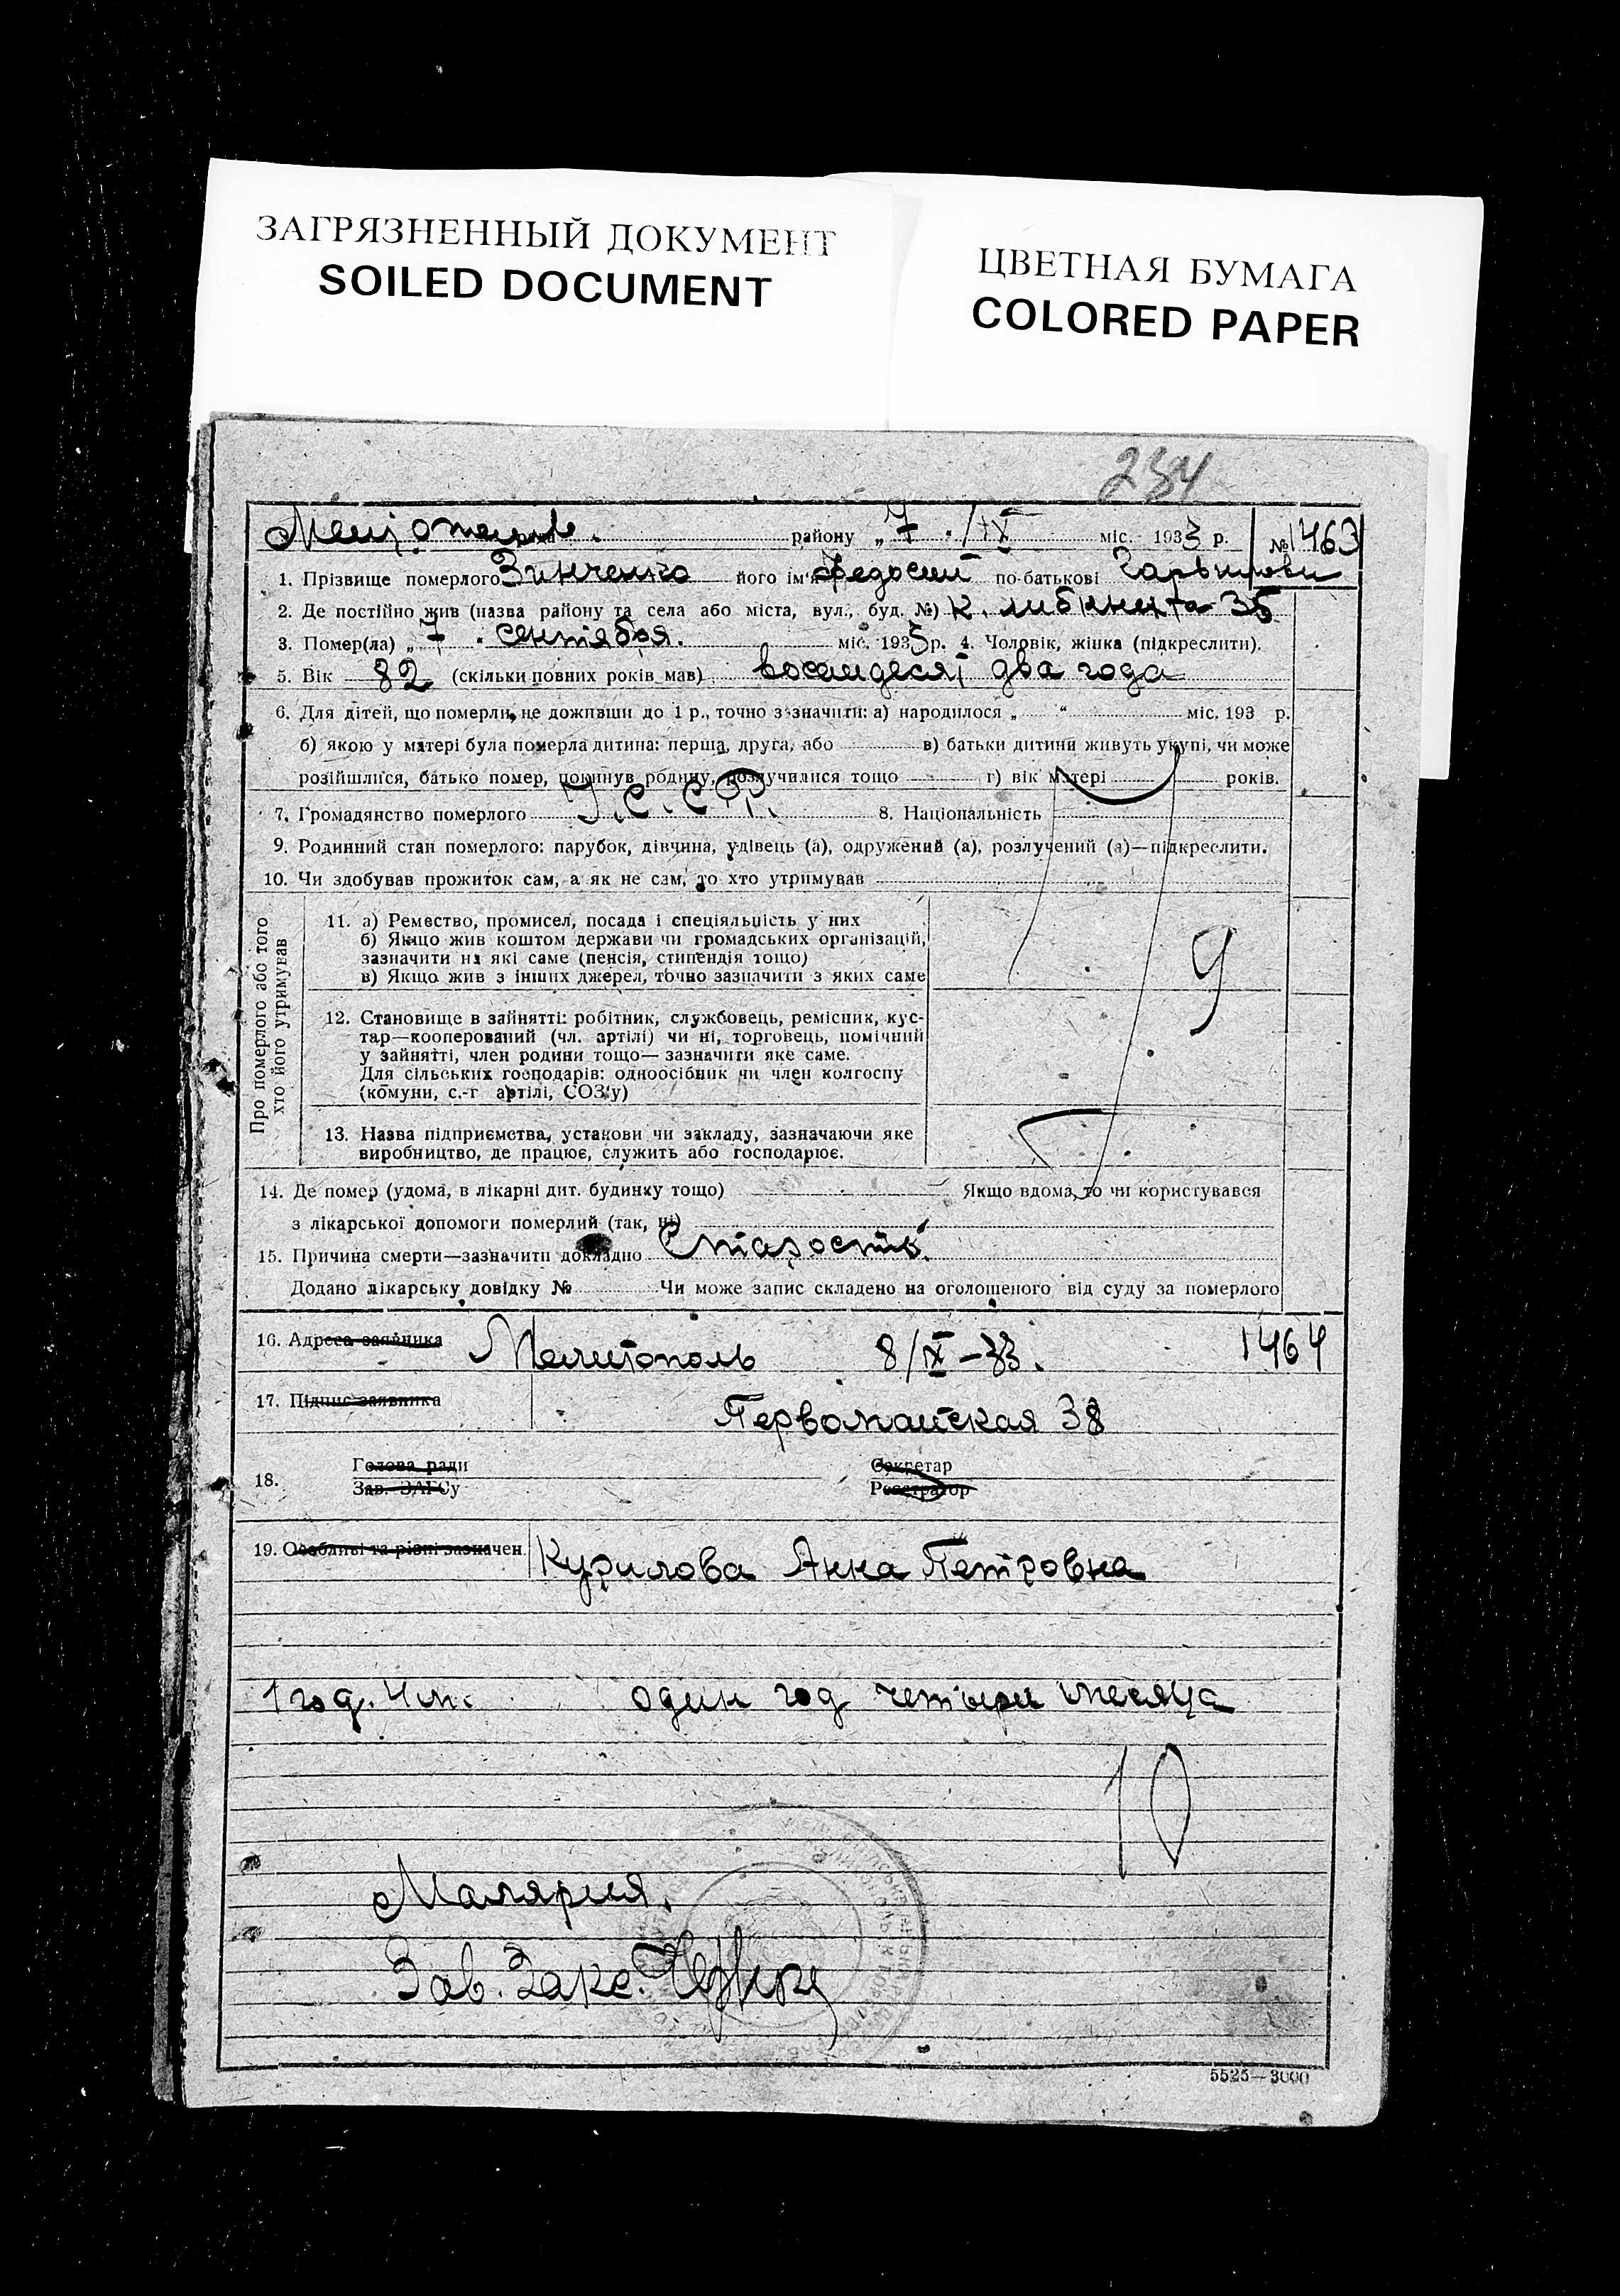 ЗАГРЯЗНЕННЫЙ ДОКУМЕНТ
SOILED DOCUMENT
ЦВЕТНАЯ БУМАГА
COLORED PAPER
234
району „ 7 " /IX міс. 1933 р. № 1463
1. Прізвище померлого Зинченко його ім'я Федосий по-батькові
2. Де постійно жив (назва району та села або міста, вул., буд. №) К. Либкнехта 35
3. Помер(ла) „ 7 " сентября. міс. 193 р. 4. Чоловік, жінка (підкреслити).
5. Вік 82 (скільки повних років мав) восемдесят два года
6. Для дітей, що померли, не доживши до 1 р., точно зазначити: а) народилося „ " міс. 193 р.
б) якою у матері була померла дитина: перша, друга, або в) батьки дитини живуть укупі, чи може
розійшлися, батько помер, покинув родину, розлучилися тощо г) вік матері років.
7. Громадянство померлого У.С.С.Р. 8. Національність
9. Родинний стан померлого: парубок, дівчина, удівець (а), одружений (а), розлучений (а)—підкреслити.
10. Чи здобував прожиток сам, а як не сам, то хто утримував
Про померлого або того
хто його утримував
11. а) Ремество, промисел, посада і спеціяльність у них
б) Якщо жив коштом держави чи громадських організацій,
зазначити на які саме (пенсія, стипендія тощо)
в) Якщо жив з інших джерел, точно зазначити з яких саме
9
12. Становище в зайнятті: робітник, службовець, ремісник, кус-
тар—кооперований (чл. артілі) чи ні, торговець, помічний
у зайнятті, член родини тощо— зазначити яке саме.
Для сільських господарів: одноосібник чи член колгоспу
(комуни, с.-г артілі, СОЗ'у)
13. Назва підприємства, установи чи закладу, зазначаючи яке
виробництво, де працює, служить або господарює.
14. Де помер (удома, в лікарні дит. будинку тощо) Якщо вдома, то чи користувався
з лікарської допомоги померлий (так, ні)
15. Причина смерти—зазначити докладно Старость.
Додано лікарську довідку № Чи може запис складено на оголошеного від суду за померлого
16. Адреса заявника Мелитополь 8/IX-33. 1464
17. Підпис заявника Первомайская 38
18. Голова ради Секретар
Зав. ЗАГСу Реєстратор
19. Особливі та різні зазначен. Курилова Анна Петровна
1 год. 4 м. один год четыри месяца
10
Малярия.
Зав. Загс.
5525—3000